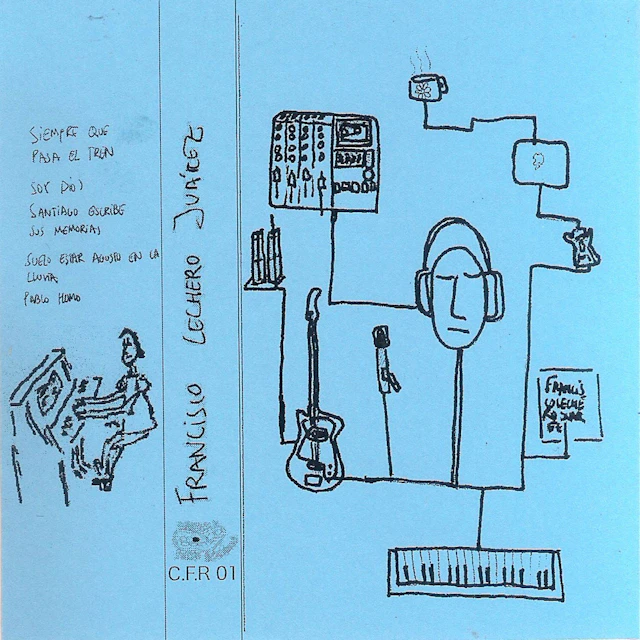 SIEMPRE QUE
PASA EL TREN
SOY DIOS
SANTIAGO ESCRIBE
SUS MEMORIAS
SUELO ESTAR AGUSTO EN LA
LLUVIA
PABLO HOMO
FRANCISCO LECHERO JUÁREZ
C.F.R 01
FRANCIS
CO LECHE
RO JUAR
EZ